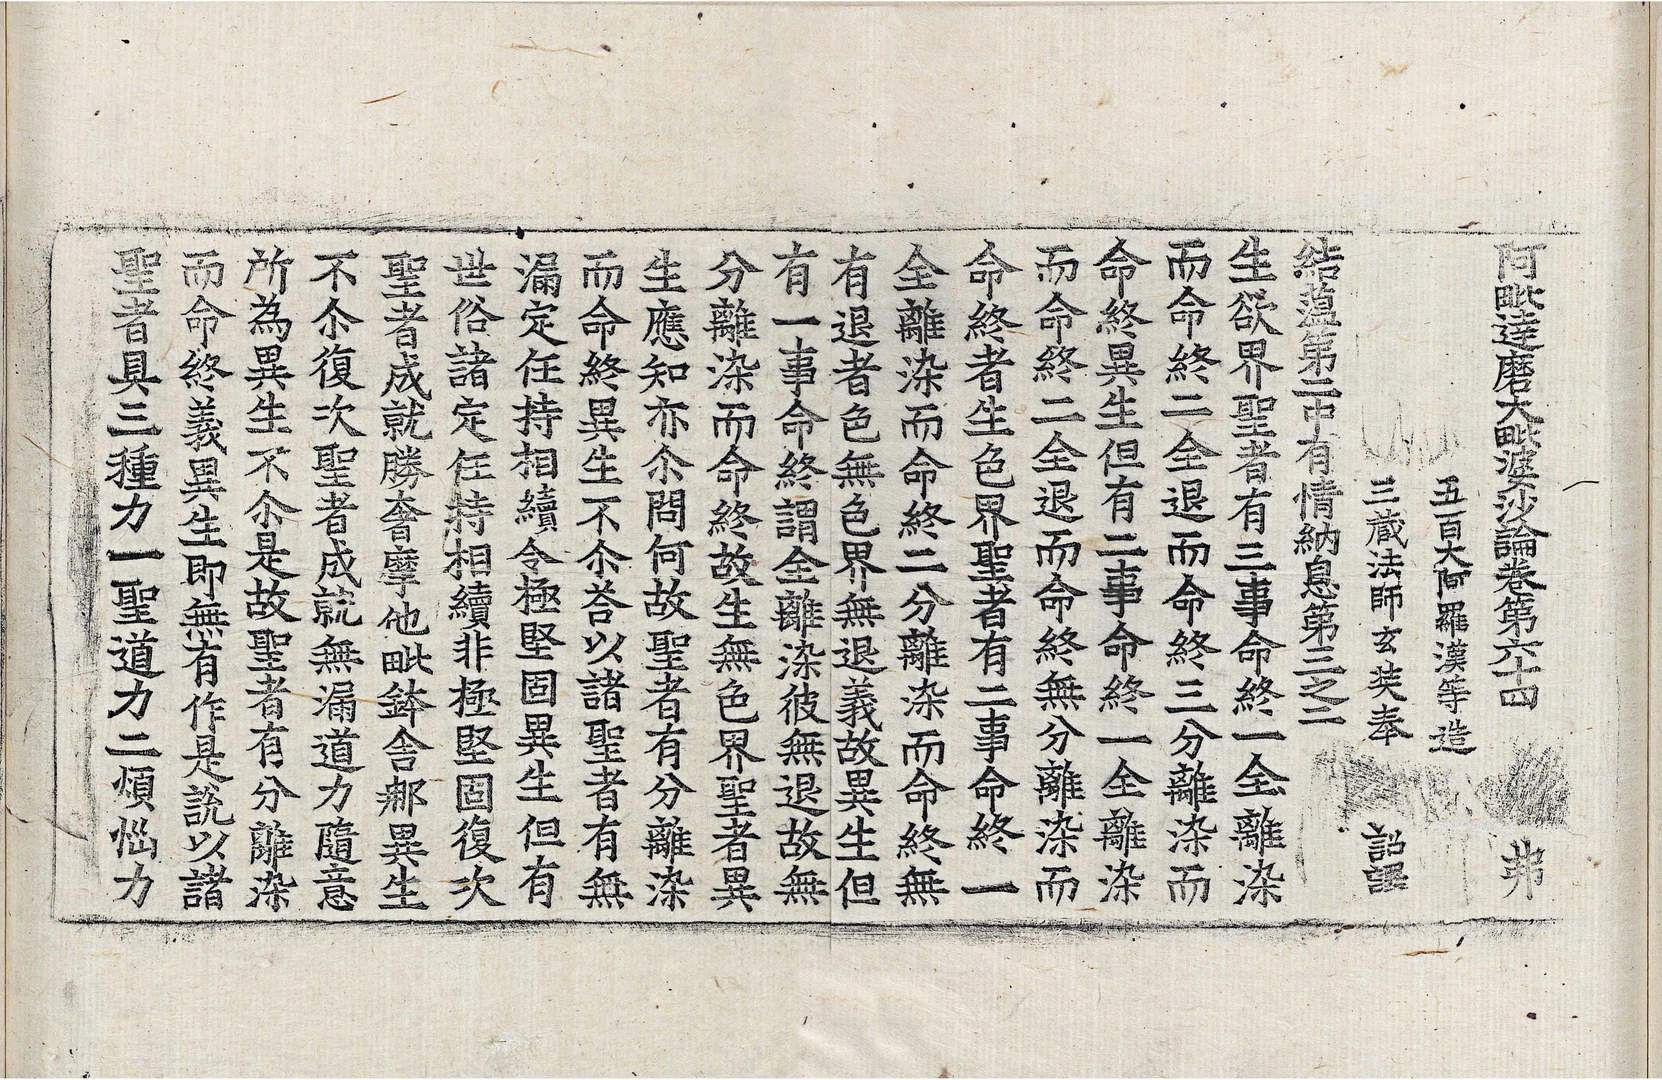 阿毗達磨大毗婆沙論卷第六十四 弗
五百大阿羅漢等造
三藏法師玄奘奉 詔譯
結蘊第二中有情納息第三之二
生欲界聖者有三事命終一全離染
而命終二全退而命終三分離染而
命終異生但有二事命終一全離染
而命終二全退而命終無分離染而
命終者生色界聖者有二事命終一
全離染而命終二分離染而命終無
有退者色無色界無退義故異生但
有一事命終謂全離染彼無退故無
分離染而命終故生無色界聖者異
生應知亦尒問何故聖者有分離染
而命終異生不尒荅以諸聖者有無
漏定任持相續令極堅固異生但有
世俗諸定任持相續非極堅固復次
聖者成就勝奢摩他毗鉢舍那異生
不尒復次聖者成就無漏道力隨意
所為異生不尒是故聖者有分離染
而命終義異生即無有作是說以諸
聖者具三種力一聖道力二煩惱力